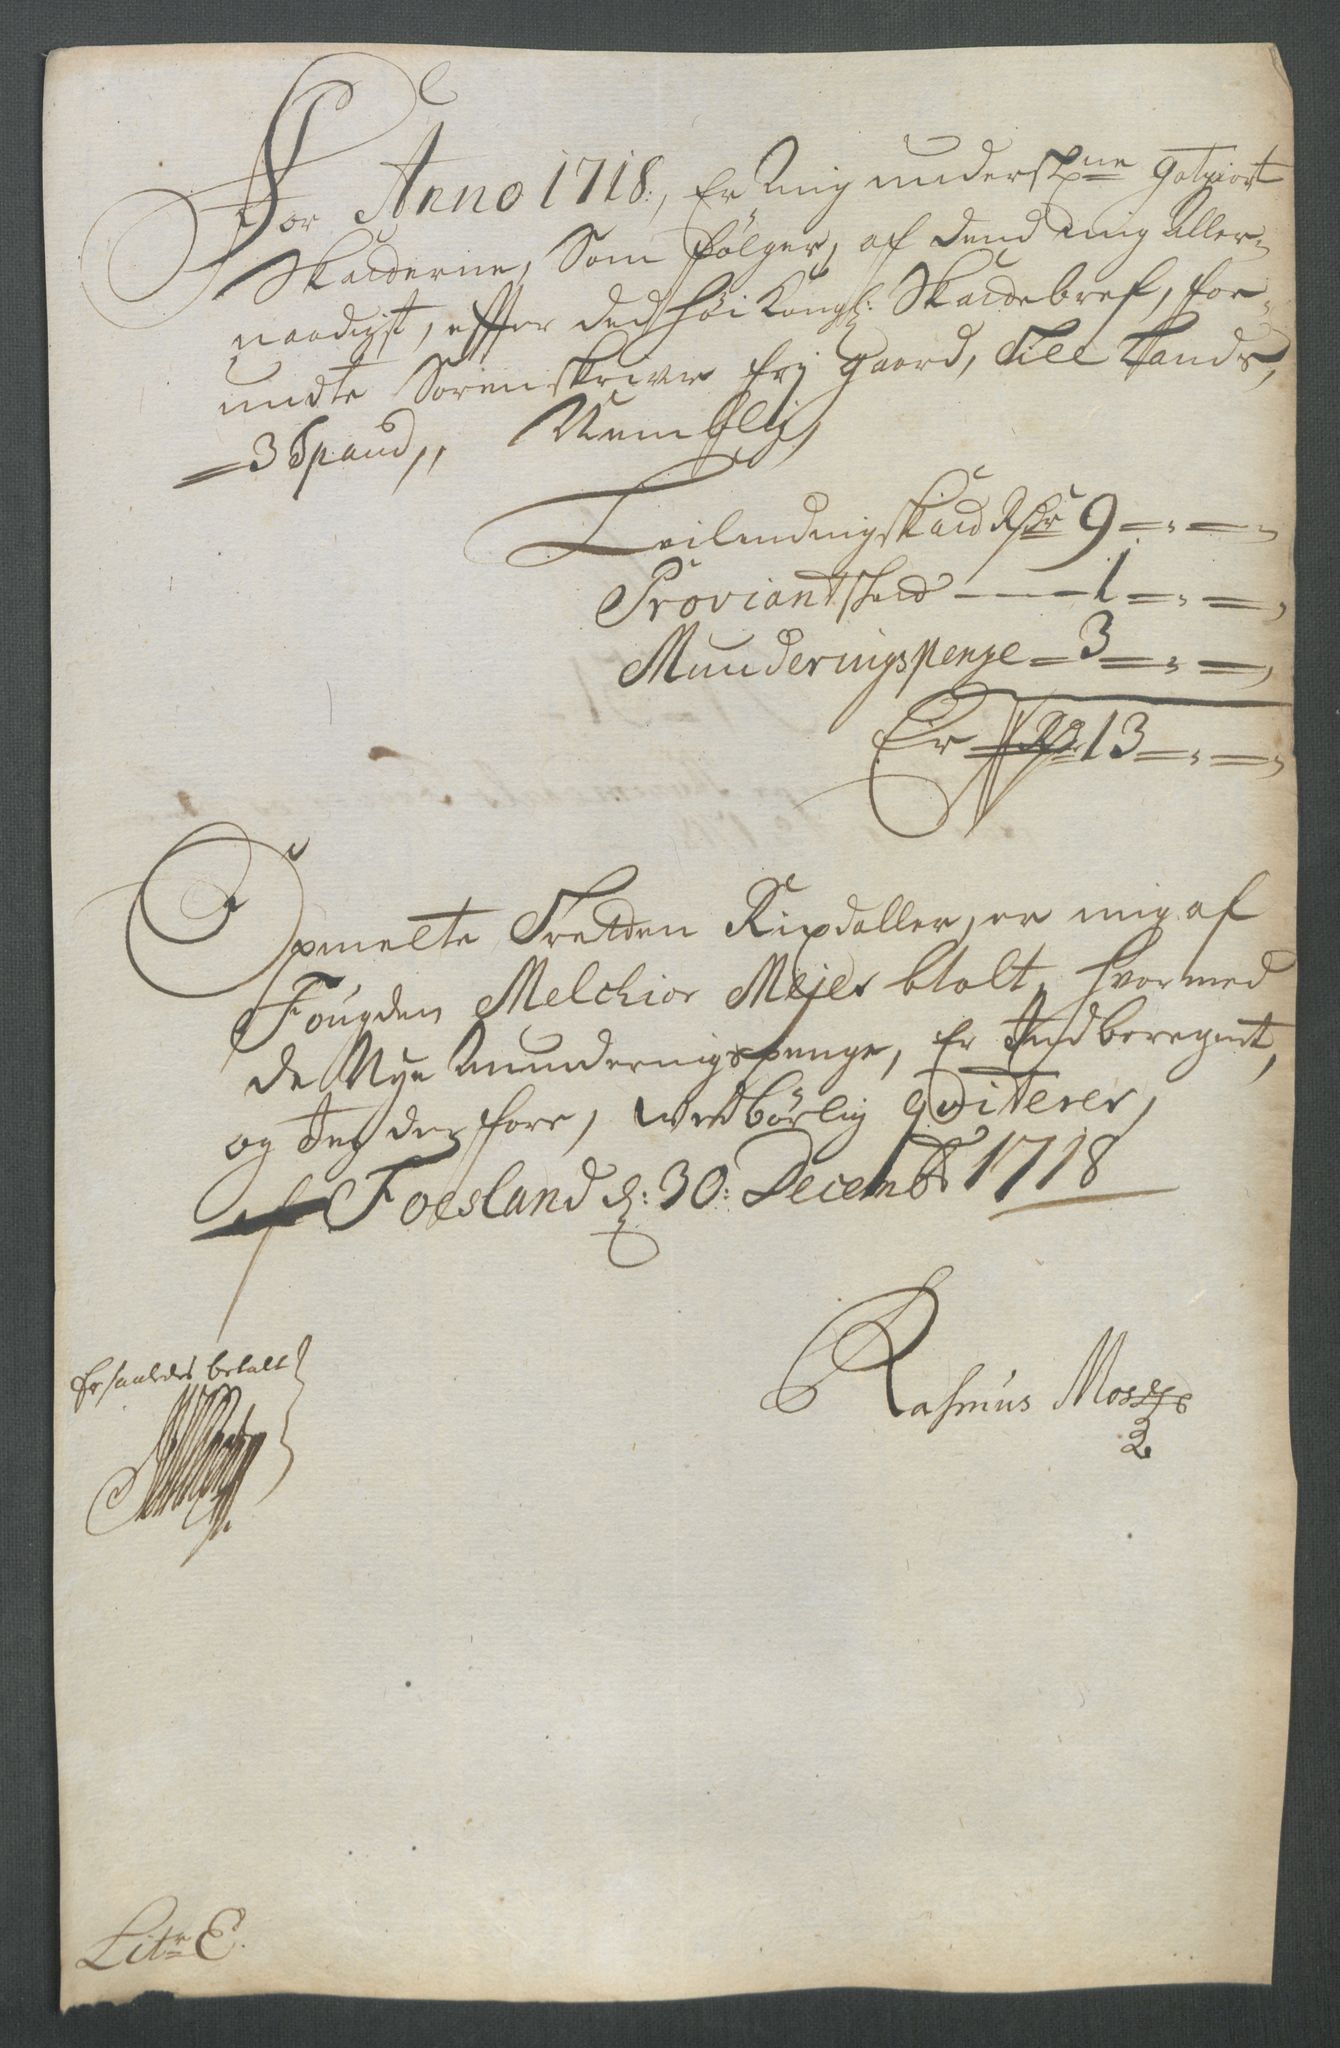 For Anno 1718, Er Mig underskr:ne godtgiort
Skatterne, Som følger, af dend mig Aller-
naadigst, effter ded høi Kongl: Skattebref, for-
undte Sorenskriver frj gaard, Till Lands,
3 Spand,, Nemblig,
Leilendingskatt Rdr 9 - " -
Proviantskatt - 1 - " -
Munderingspenge - 3 - " -
Er Rdr 13 - " -
Opmelte Tretten Rixdaller, er mig af
Fougden Melchior Mejer btalt, hvormed
de Nye Munderingspenge, Er Indberegnet,
og Jeg derfore, wedbørlig qviterer,
Foesland d: 30: Decembr 1718
Rasmus Moss
Er saaledes betalt
Litr E.